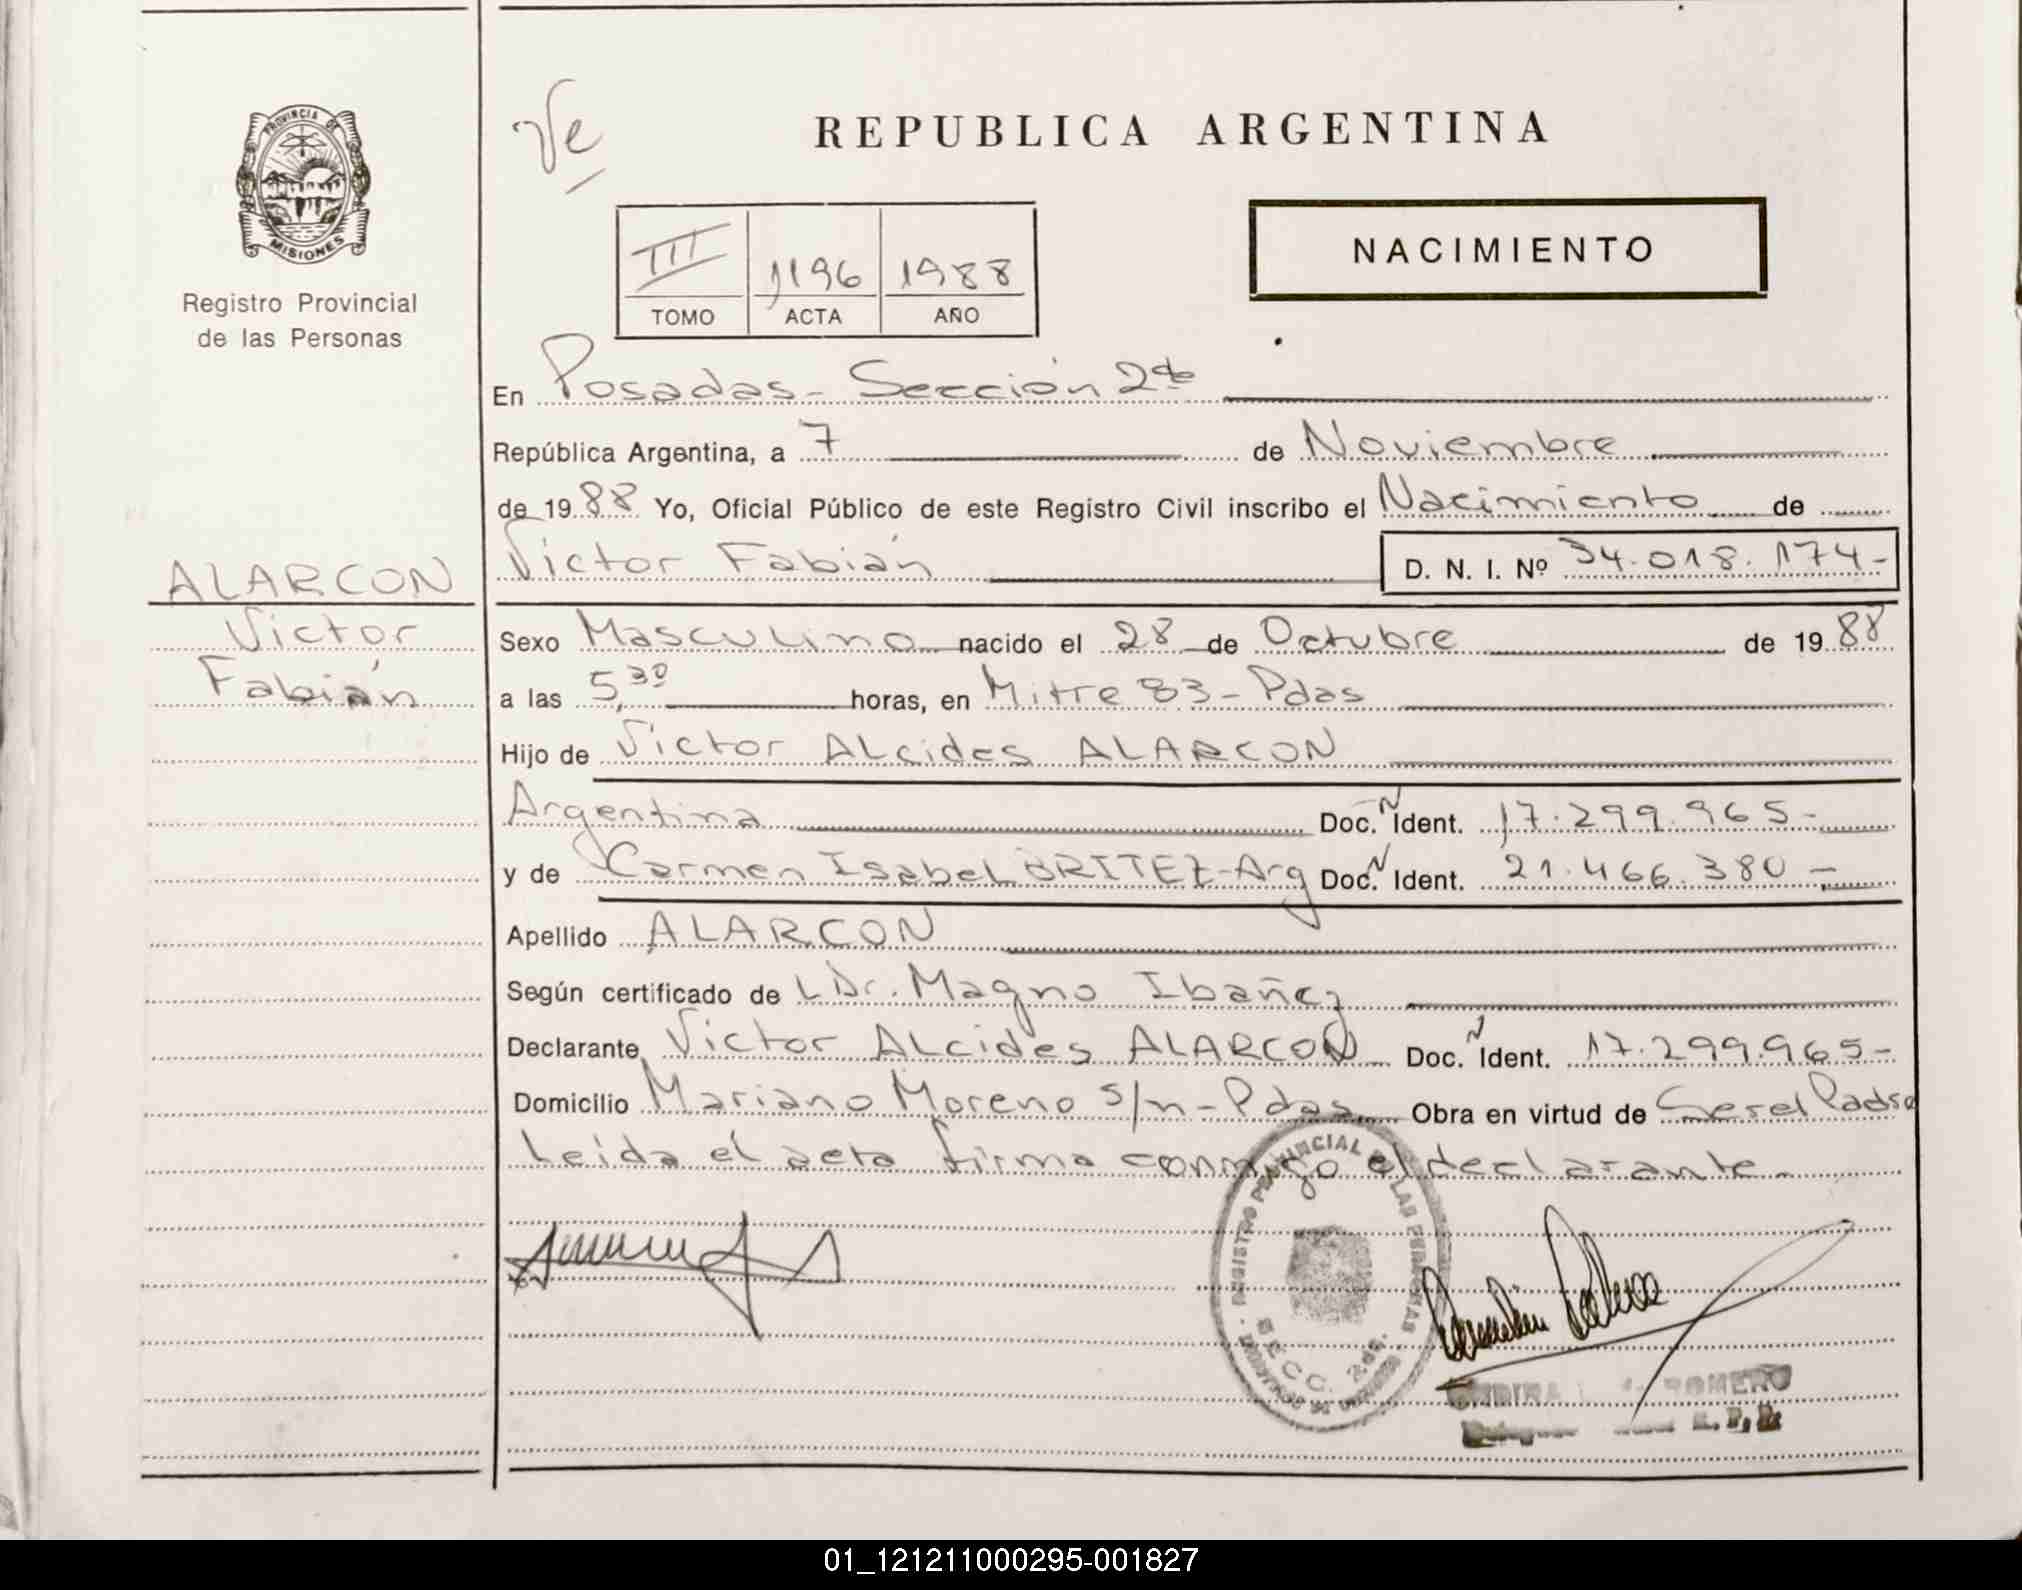 PROVINCIA DE
MISIONES
Registro Provincial
de las Personas
ALARCON
Victor
Fabián
Ve
REPUBLICA ARGENTINA
NACIMIENTO
III 1196 1988
TOMO ACTA AÑO
En Posadas - Sección 2da
República Argentina, a 7 de Noviembre
de 1988 Yo, Oficial Público de este Registro Civil inscribo el Nacimiento de
Victor Fabián D. N. I. Nº 34.018.174-
Sexo Masculino nacido el 28 de Octubre de 1988
a las 5,30 horas, en Mitre 83 - Pdas
Hijo de Victor ALcides ALARCON
Argentina Doc. N Ident. 17.299.965-
y de Carmen Isabel BRITEZ-Arg Doc. N Ident. 21.466.380-
Apellido ALARCON
Según certificado de L Dr. Magno Ibañez
Declarante Victor ALcides ALARCON Doc. N Ident. 17.299.965-
Domicilio Mariano Moreno s/n - Pdas Obra en virtud de Ser el Padre
Leida el acta firma conmigo el declarante-
REGISTRO PROVINCIAL DE LAS PERSONAS
SECC. 2da.
ROMERO
R. P. P.
01_121211000295-001827